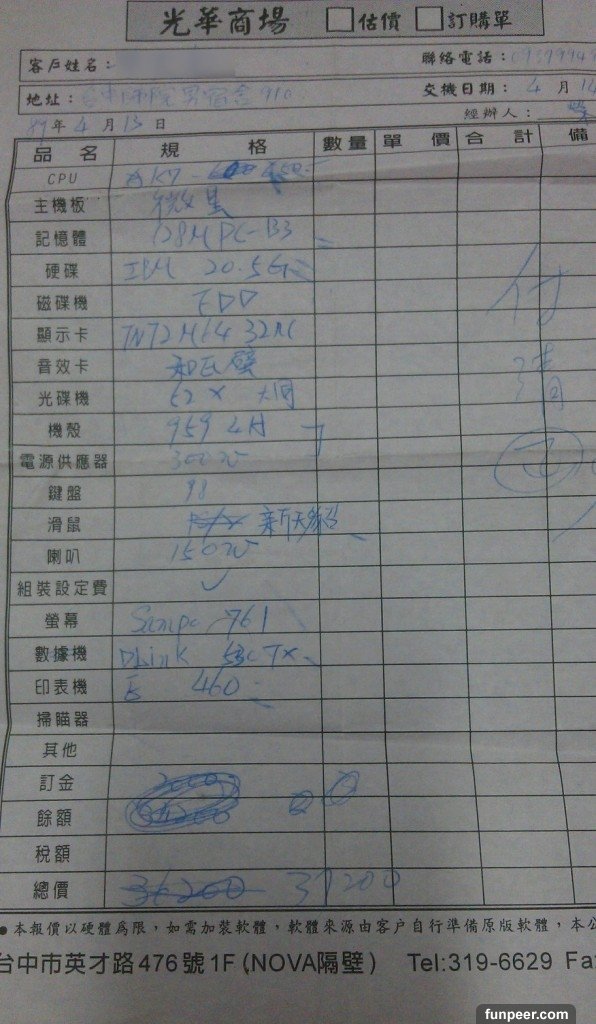 光華商場 □估價 □訂購單
客戶姓名： 聯絡電話：
地址： 910 交機日期：4月14
89年4月13日 經辦人：
品名 規格 數量 單價 合計 備
CPU AK7- 650
主機板 微星
記憶體 128M PC-133
硬碟 IBM 20.5G
磁碟機 FDD
顯示卡 TNT2 M64 32M
音效卡 和氏璧
光碟機 52X 大同
機殼 959
電源供應器 300W
鍵盤 98
滑鼠 新天貂
喇叭 150W
組裝設定費 ✓
螢幕 Sampo 761
數據機 DLink 530TX
印表機 E 460
掃瞄器
其他
付
清
訂金 2000
餘額
稅額
總價 36200 37200
●本報價以硬體為限，如需加裝軟體，軟體來源由客戶自行準備原版軟體，本公
台中市英才路476號1F(NOVA隔壁) Tel:319-6629 Fa
funpeer.com